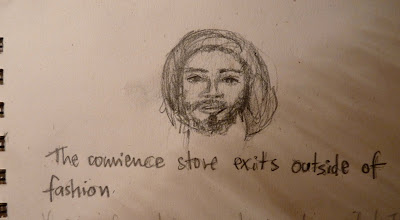 The comience store exits outside of
fashion.